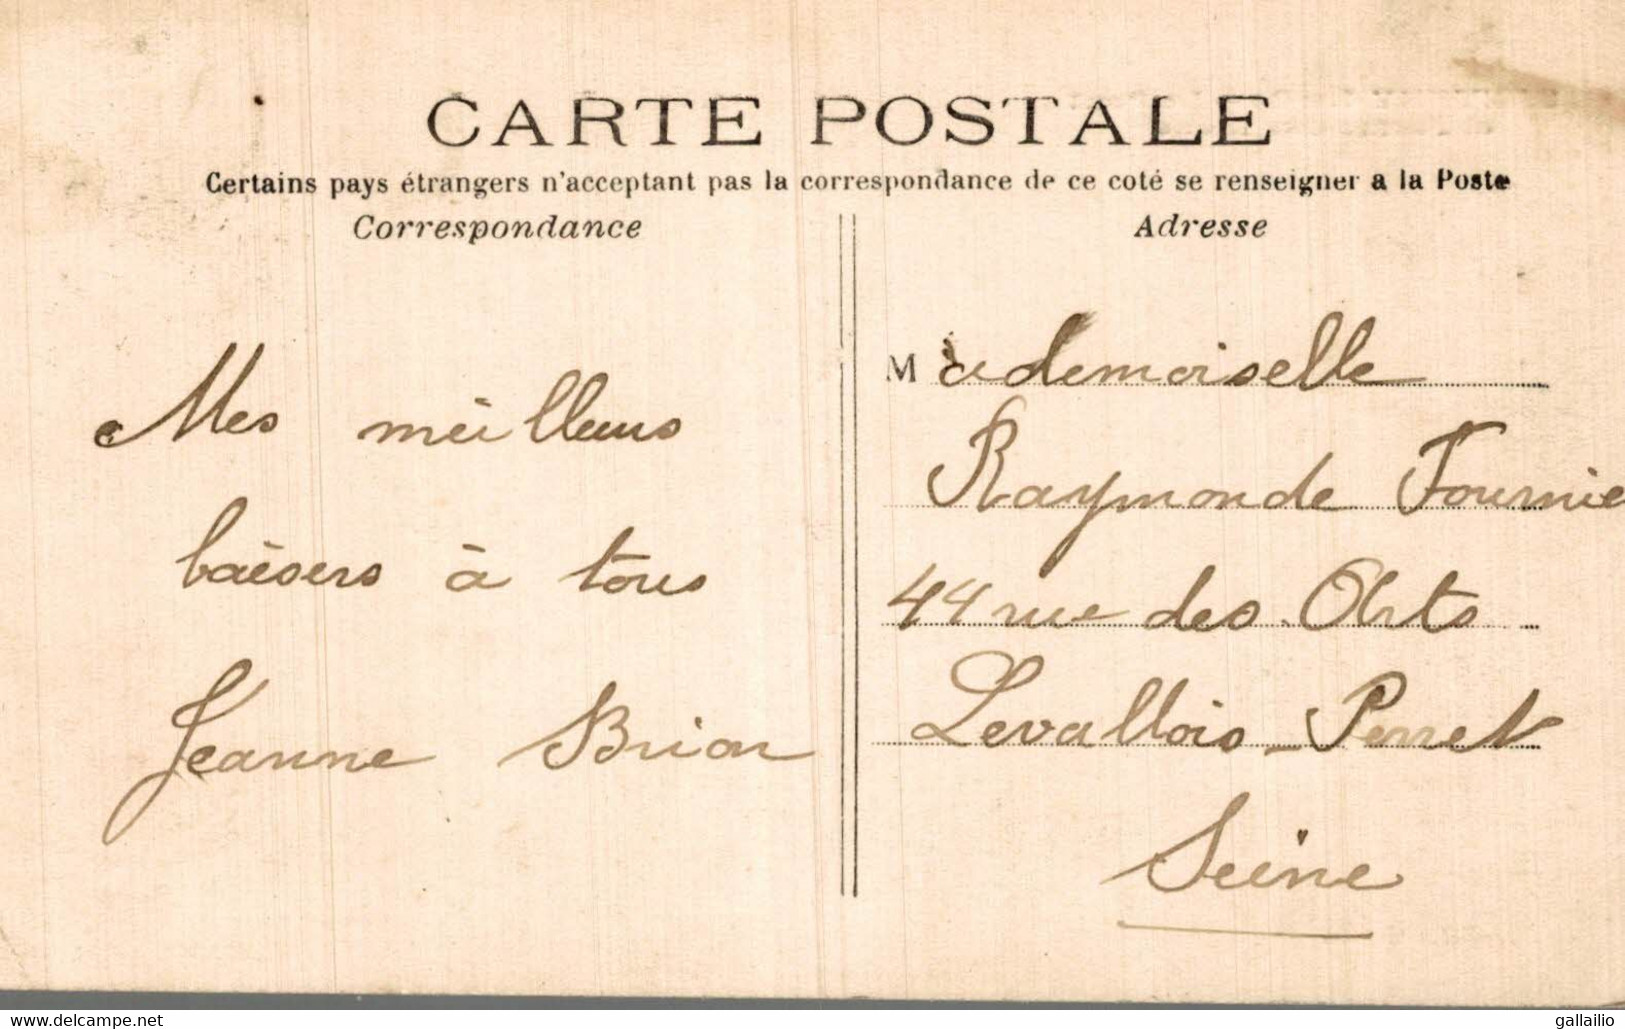 CARTE POSTALE
Certains pays étrangers n'acceptant pas la correspondance de ce coté se renseigner a la Poste
Correspondance
Adresse
Mes meilleurs
baisers à tous
Jeanne Brion
Mademoiselle
Raymonde Fournie
44 rue des Arts
Levallois-Perret
Seine
www.delcampe.net
gallailio